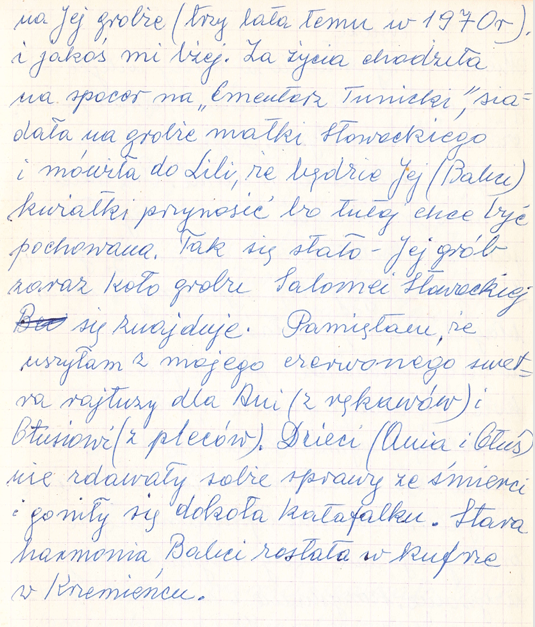 na Jej grobie (trzy lata temu w 1970r).
i jakoś mi lżej. Za życia chodziła
na spacer na „Cmentarz Tunicki", sia=
dała na grobie matki Słowackiego
i mówiła do Lili, że będzie Jej (Babci)
kwiatki przynosić bo tutaj chce być
pochowana. Tak się stało - Jej grób
zaraz koło grobu Salomei Słowackiej
się znajduje. Pamiętam, że
uszyłam z mojego czerwonego swet=
ra rajtuzy dla Ani (z rękawów) i
(z pleców). Dzieci (Ania i
nie zdawały sobie sprawy ze śmierci
i goniły się dokoła katafalku. Stara
harmonia Babci została w kufrze
w Krzemieńcu.